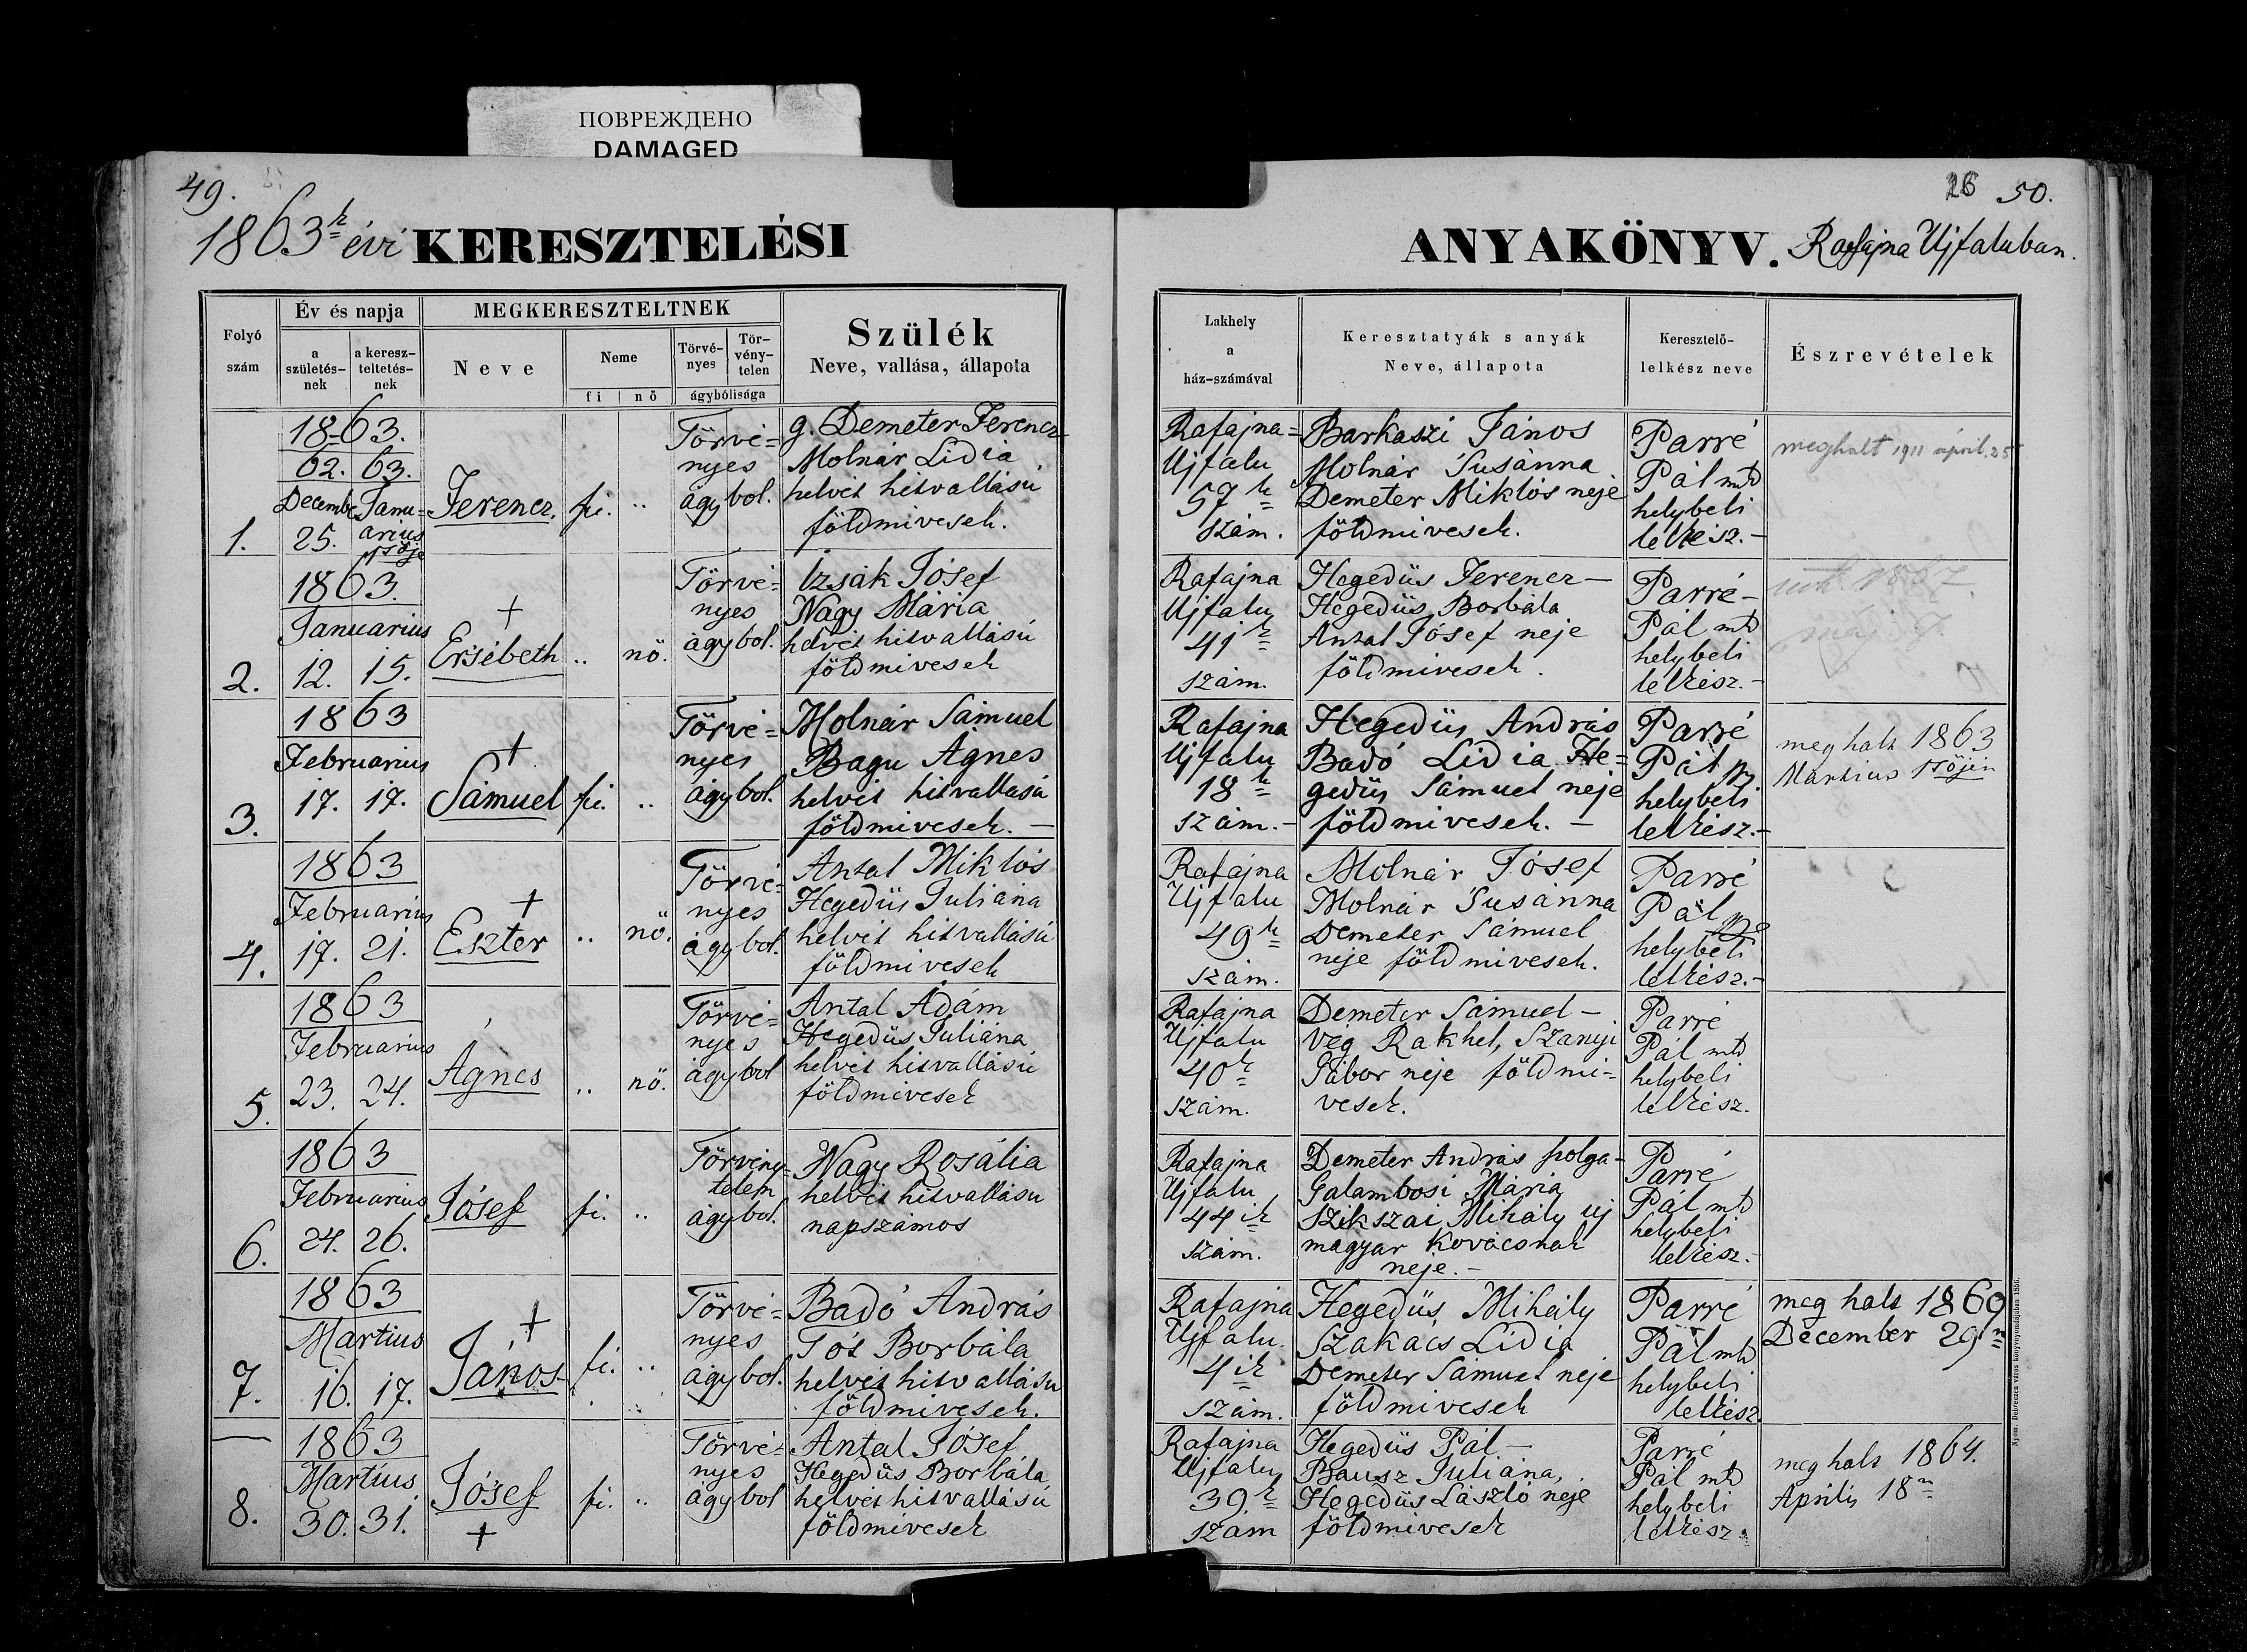 ПОВРЕЖДЕНО
DAMAGED
49.
1863k évi KERESZTELÉSI
Folyó
szám
Év és napja
a
születés-
nek
a keresz-
teltetés-
nek
MEGKERESZTELTNEK
Neve
Neme
fi
nő
Törvé-
nyes
Tör-
vény-
telen
ágybólisága
Szülék
Neve, vallása, állapota
1.
1863.
62. 63.
Decemb. Janu=
25. arius
1sője
Ferencz.
fi. ..
Törvé=
nyes
ágybol.
g. Demeter Ferencz
Molnár Lidia
helvét hitvallású
földmivesek.
2.
1863.
Januarius
12. 15.
+
Ersébeth
.. nő.
Törvé=
nyes
ágybol.
Izsák Jósef
Nagy Mária
helvét hitvallású
földmivesek
3.
1863
Februarius
17. 17.
+
Sámuel
fi. ..
Törvé=
nyes
ágybol.
Molnár Sámuel
Bagu Ágnes
helvét hitvallású
földmivesek. —
4.
1863
Februarius
17. 21.
+
Eszter
.. nő.
Törvé=
nyes
ágybol.
Antal Miklós
Hegedüs Juliána
helvét hitvallású
földmivesek
5.
1863
Februarius
23. 24.
Ágnes
.. nő.
Törvé=
nyes
ágybol
Antal Ádám
Hegedüs Juliána
helvét hitvallású
földmivesek
6.
1863
Februarius
24. 26.
Jósef
fi. ..
Törvény=
telen
ágybol.
Nagy Rosália
helvét hitvallásu
napszámos
7.
1863
Martius
16. 17.
+
János
fi. ..
Törvé=
nyes
ágybol.
Badó András
Tót Borbála
helvét hitvallásu
földmivesek.
8.
1863
Martius
30. 31.
Jósef
+
fi. ..
Törvé=
nyes
ágybol
Antal Jósef
Hegedüs Borbála
helvét hitvallású
földmivesek
26 50.
ANYAKÖNYV. Rafajna Ujfaluban.
Lakhely
a
ház-számával
Keresztatyák s anyák
Neve, állapota
Keresztelő-
lelkész neve
Észrevételek
Rafajna=
Ujfalu
57k
szám.
Barkaszi János
Molnár Susánna
Demeter Miklós neje
földmivesek.
Parré
Pál mk
helybeli
lelkész.—
meghalt 1911 ápril. 25
Rafajna
Ujfalu
41k
szám.
Hegedüs Ferencz—
Hegedüs Borbála
Antal Jósef neje
földmivesek.
Parré—
Pál mk
helybeli
lelkész.—
Rafajna
Ujfalu
18k
szám.—
Hegedüs András
Badó Lidia He=
gedüs Sámuel neje
földmivesek. —
Parré
Pál mk
helybeli
lelkész.—
meghalt 1863
Martius 1sőjén
Rafajna
Ujfalu
49k
szám.
Molnár Jósef
Molnár Susánna
Demeter Sámuel
neje földmivesek.
Parré
Pál mk
helybeli
lelkész.—
Rafajna
Ujfalu
40k
szám.
Demeter Sámuel —
Vég Rakhel, Szanyi
Gábor neje földmi=
vesek.
Parré
Pál mk
helybeli
lelkész.
Rafajna
Ujfalu
44ik
szám.
Demeter András polga-
Galambosi Mária
Szikszai Mihály uj
magyar Kovácsnak
neje.—
Parré
Pál mk
helybeli
lelkész.—
Rafajna
Ujfalu.
4ik
szám.
Hegedüs Mihály
Szakács Lidia
Demeter Sámuel neje
földmivesek
Parré
Pál mk
helybeli
lelkész.
meg halt 1869
December 29n
Rafajna
Ujfalu
39k
szám
Hegedüs Pál —
Bausz Juliána,
Hegedüs László neje
földmivesek
Parré
Pál mk
helybeli
lelkész.
meghalt 1864.
Április 18n
Nyom. Debreczen város könyvnyomdájában 1856.